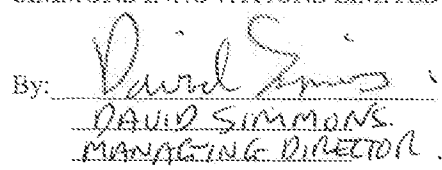 By: David Simmons
DAVID SIMMONS.
MANAGING DIRECTOR.